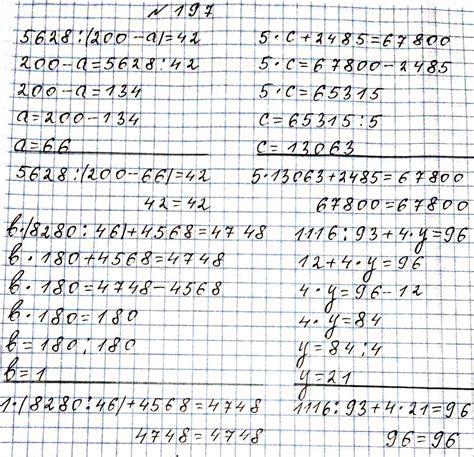 № 197
5628:(200-a)=42
200-a=5628:42
200-a=134
a=200-134
a=66
5628:(200-66)=42
42=42
5·c+2485=67800
5·c=67800-2485
5·c=65315
c=65315:5
c=13063
5·13063+2485=67800
67800=67800
b·(8280:46)+4568=4748
b·180+4568=4748
b·180=4748-4568
b·180=180
b=180:180
b=1
1·(8280:46)+4568=4748
4748=4748
1116:93+4·y=96
12+4·y=96
4·y=96-12
4·y=84
y=84:4
y=21
1116:93+4·21=96
96=96